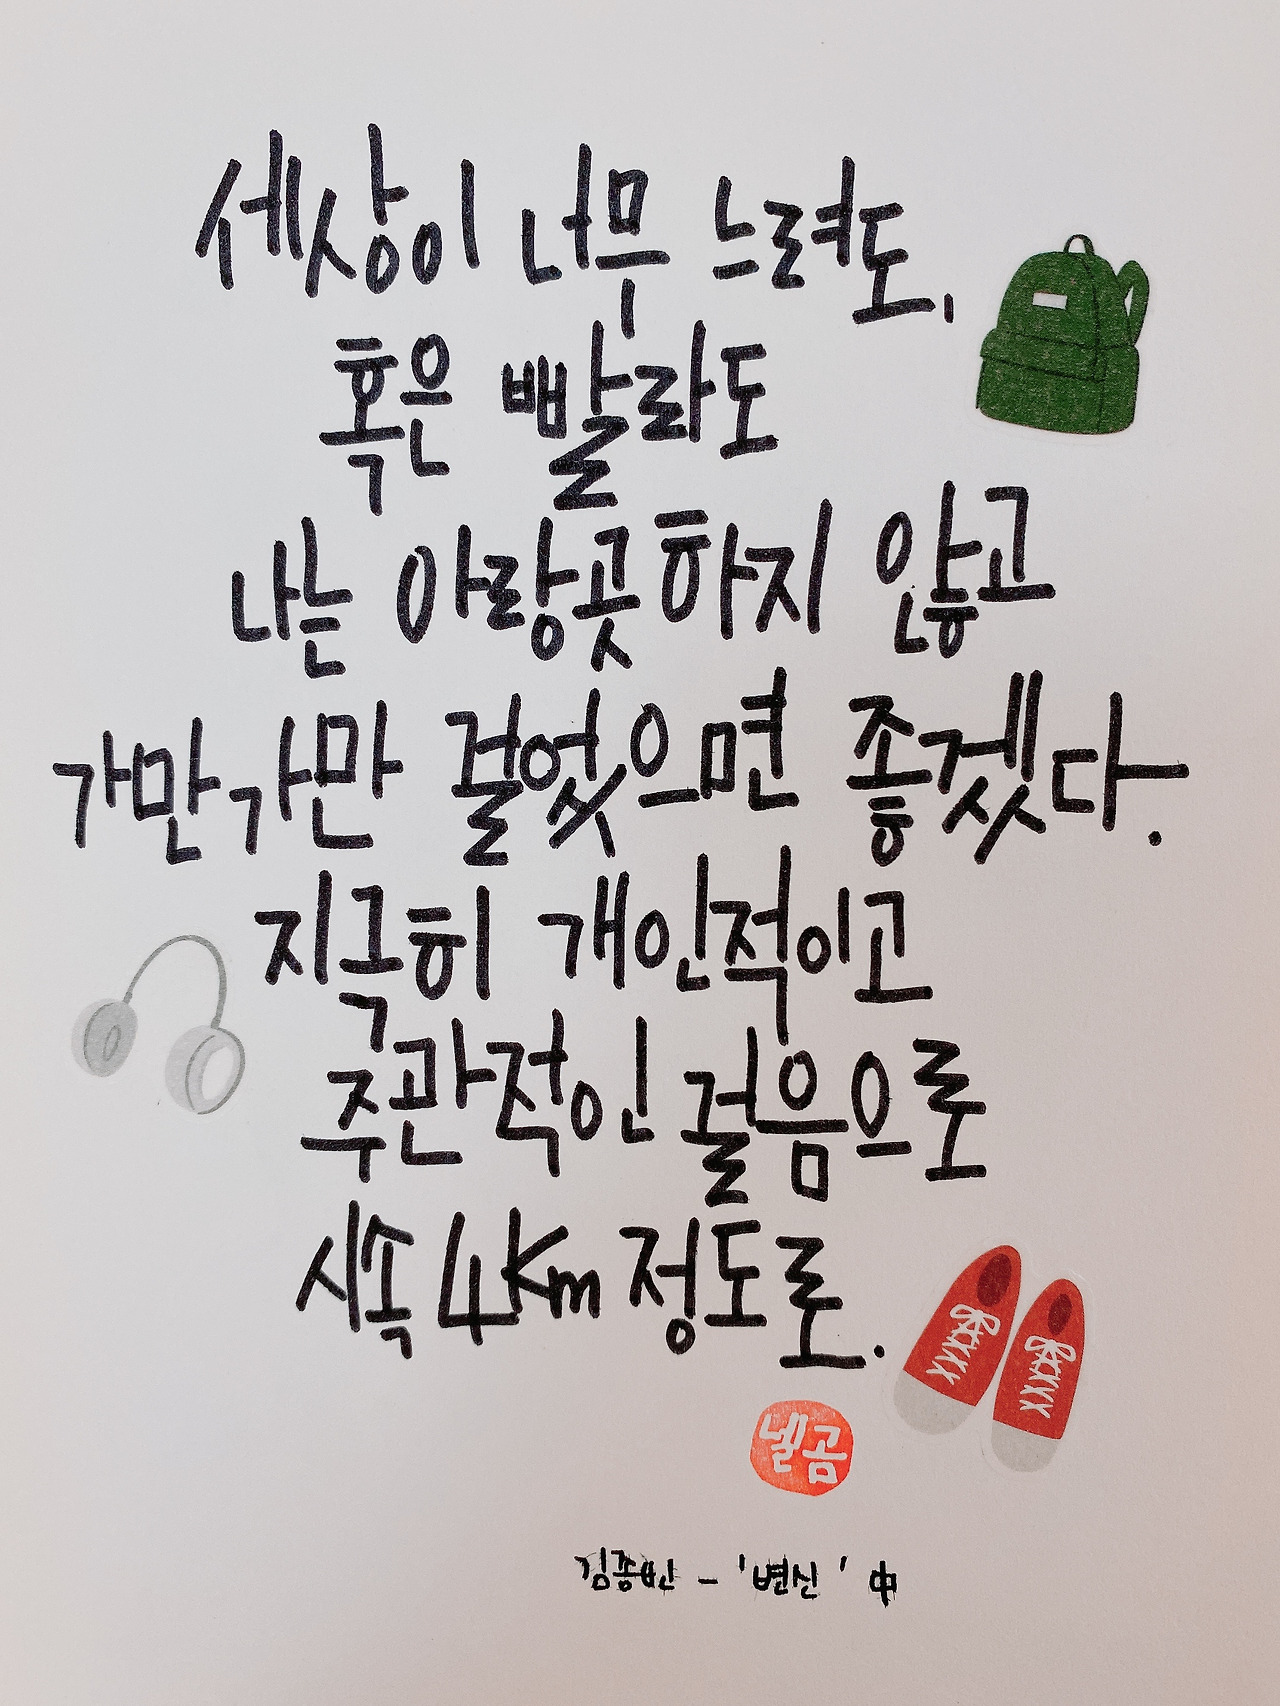 세상이 너무 느려도,
혹은 빨라도
나는 아랑곳하지 않고
가만가만 걸었으면 좋겠다.
지극히 개인적이고
주관적인 걸음으로
시속 4Km 정도로.
넬곰
김종빈 - '변신' 中